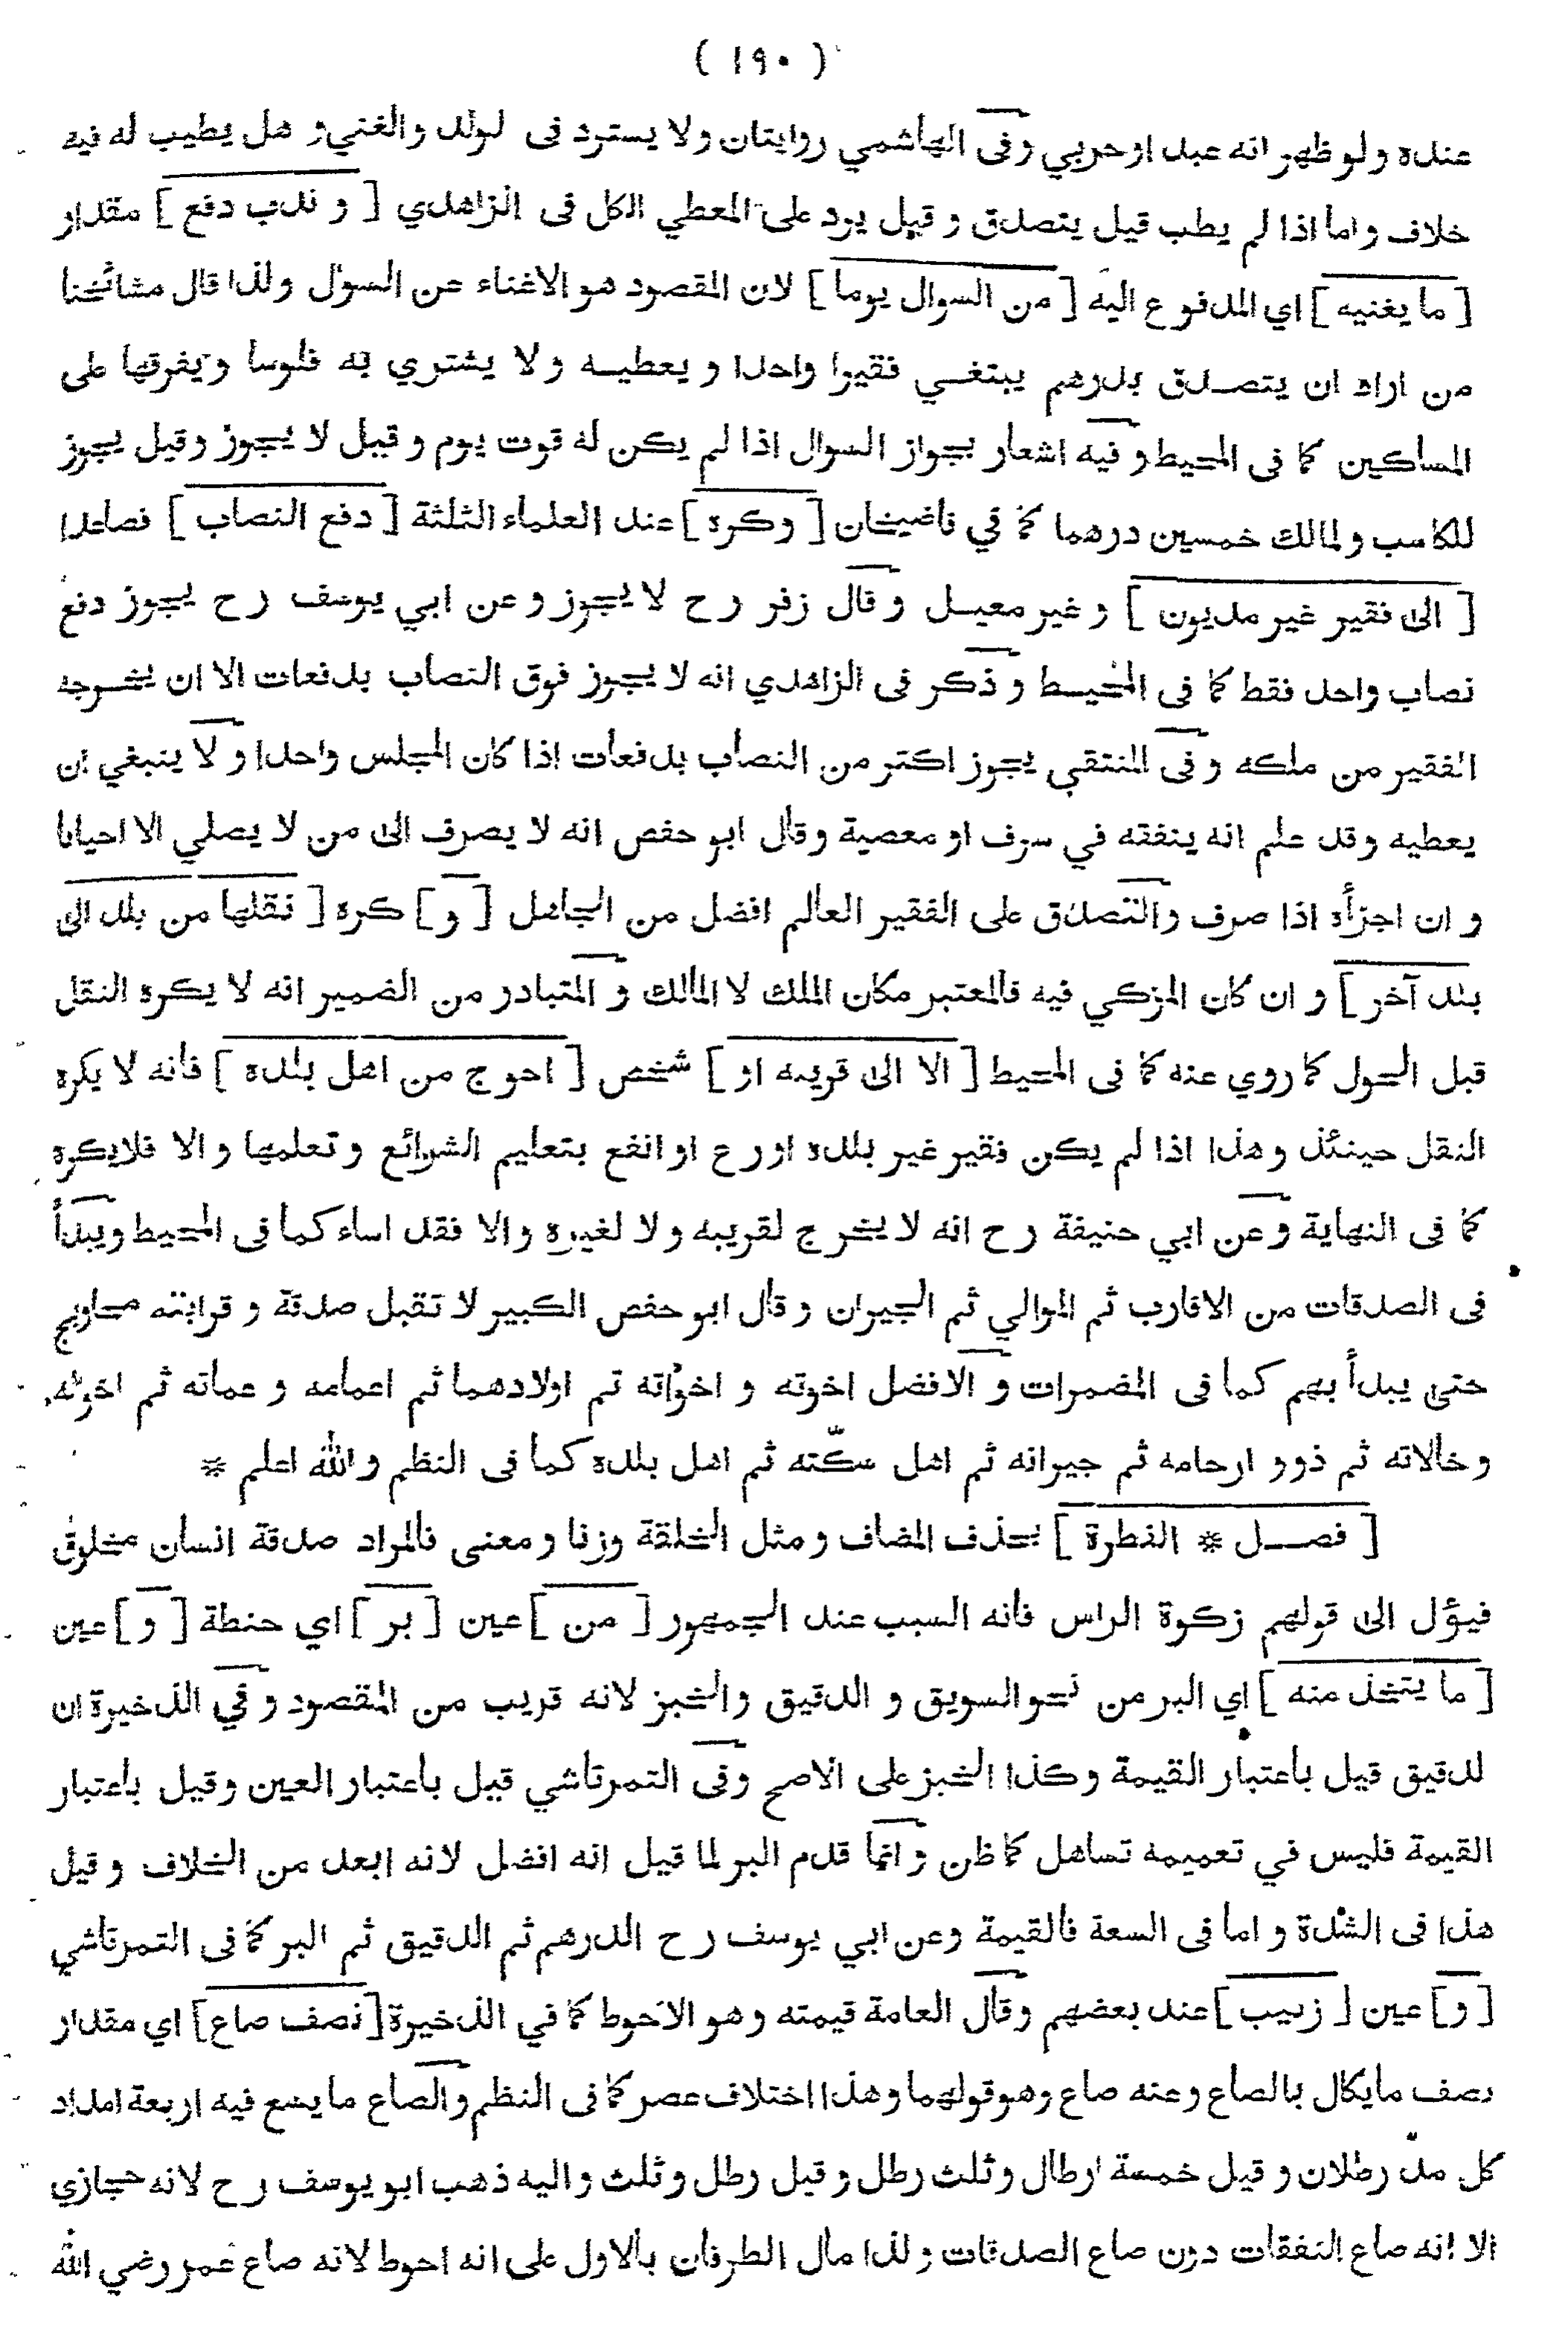 ( ١٩٠ )
عنده ولو ظهر انه عبد او حربي وفى الهاشمي روايتان ولا يسترد فى لولد والغني و هل يطيب له فيه
خلاف واما اذا لم يطب قيل يتصدق و قيل يرد على المعطي الكل فى الزاهدي [ و ندب دفع ] مقدار
[ ما يغنيه ] اي المدفوع اليه [ من السوال يوما ] لان المقصود هو الاغناء عن السوال ولذا قال مشائخنا
من اراد ان يتصدق بدرهم يبتغي فقيرا واحدا و يعطيه و لا يشتري به فلوسا و يفرقها على
المساكين كما فى المحيط و فيه اشعار بجواز السوال اذا لم يكن له قوت يوم و قيل لا يجوز وقيل يجوز
للكاسب و لمالك خمسين درهما كما في قاضيخان [ وكره ] عند العلماء الثلثة [ دفع النصاب ] فصاعدا
[ الى فقير غير مديون ] و غير معيل و قال زفر رح لا يجوز و عن ابي يوسف رح يجوز دفع
نصاب واحد فقط كما فى المحيط و ذكر فى الزاهدي انه لا يجوز فوق النصاب بدفعات الا ان يخرجه
الفقير من ملكه و فى المنتقى يجوز اكثر من النصاب بدفعات اذا كان المجلس واحدا و لا ينبغي ان
يعطيه وقد علم انه ينفقه في سرف او معصية وقال ابو حفص انه لا يصرف الى من لا يصلي الا احيانا
و ان اجزأه اذا صرف والتصدق على الفقير العالم افضل من الجاهل [ و ] كره [ نقلها من بلد الى
بلد آخر ] و ان كان المزكي فيه فالمعتبر مكان الملك لا المالك و المتبادر من الضمير انه لا يكره النقل
قبل الحول كما روي عنه كما فى المحيط [ الا الى قريبه او ] شخص [ احوج من اهل بلده ] فانه لا يكره
النقل حينئذ و هذا اذا لم يكن فقير غير بلده اورع او انفع بتعليم الشرائع و تعلمها و الا فلايكره
كما فى النهاية و عن ابي حنيفة رح انه لا يخرج لقريبه و لا لغيره و الا فقد اساء كما فى المحيط ويبدأ
فى الصدقات من الاقارب ثم الموالي ثم الجيران و قال ابو حفص الكبير لا تقبل صدقة و قرابته محاويج
حتى يبدأ بهم كما فى المضمرات و الافضل اخوته و اخواته ثم اولادهما ثم اعمامه و عماته ثم اخواله
وخالاته ثم ذوو ارحامه ثم جيرانه ثم اهل سكّته ثم اهل بلده كما فى النظم و الله اعلم *
[ فصل * الفطرة ] بحذف المضاف و مثل الخلقة وزنا و معنى فالمراد صدقة انسان مخلوق
فيؤل الى قولهم زكوة الراس فانه السبب عند الجمهور [ من ] عين [ بر ] اي حنطة [ و ] عين
[ ما يتخذ منه ] اي البر من نحو السويق و الدقيق والخبز لانه قريب من المقصود و في الذخيرة ان
لدقيق قيل باعتبار القيمة و كذا الخبز على الاصح وفى التمرتاشي قيل باعتبار العين وقيل باعتبار
القيمة فليس في تعميمه تساهل كما ظن و انما قدم البر لما قيل انه افضل لانه ابعد من الخلاف و قيل
هذا فى الشدة و اما فى السعة فالقيمة وعن ابي يوسف رح الدرهم ثم الدقيق ثم البر كما فى التمرتاشي
[ و ] عين [ زبيب ] عند بعضهم وقال العامة قيمته و هو الاحوط كما في الذخيرة [ نصف صاع ] اي مقدار
نصف مايكال بالصاع و عنه صاع وهو قولهما و هذا اختلاف عصر كما فى النظم و الصاع ما يسع فيه اربعة امداد
كل مدّ رطلان و قيل خمسة ارطال و ثلث رطل و قيل رطل و ثلث و اليه ذهب ابو يوسف رح لانه حجازي
الا انه صاع النفقات دون صاع الصدقات و لذا مال الطرفان بالاول على انه احوط لانه صاع عمر رضي الله